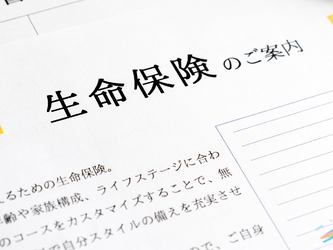 生命保険のご案内
えるための生命保険。
年齢や家族構成、ライフステージに合わ
のコースをカスタマイズすることで、無
で自分スタイルの備えを充実させ
ので、ご自身